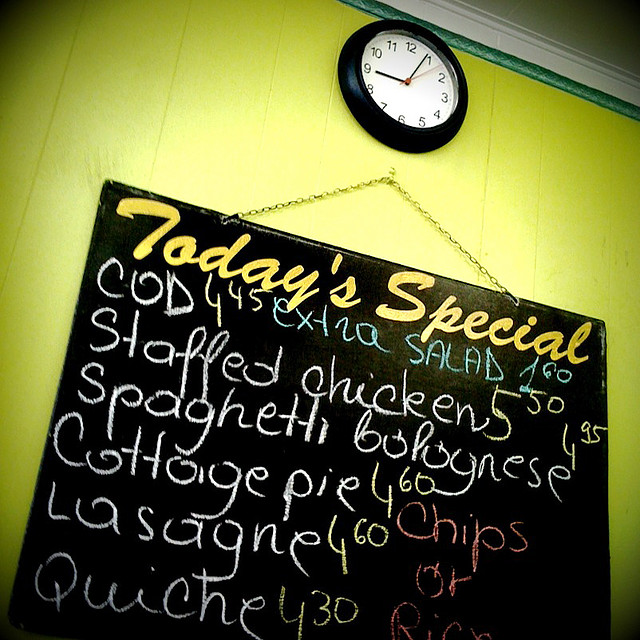 12
1
2
3
4
5
6
7
8
9
10
11
Today's Special
COD 4 45 extra SALAD 1 60
Staffed chicken 5 50
Spaghetti bolognese 4 95
Cottage pie 4 60
Lasagne 4 60 Chips
or
Quiche 4 30